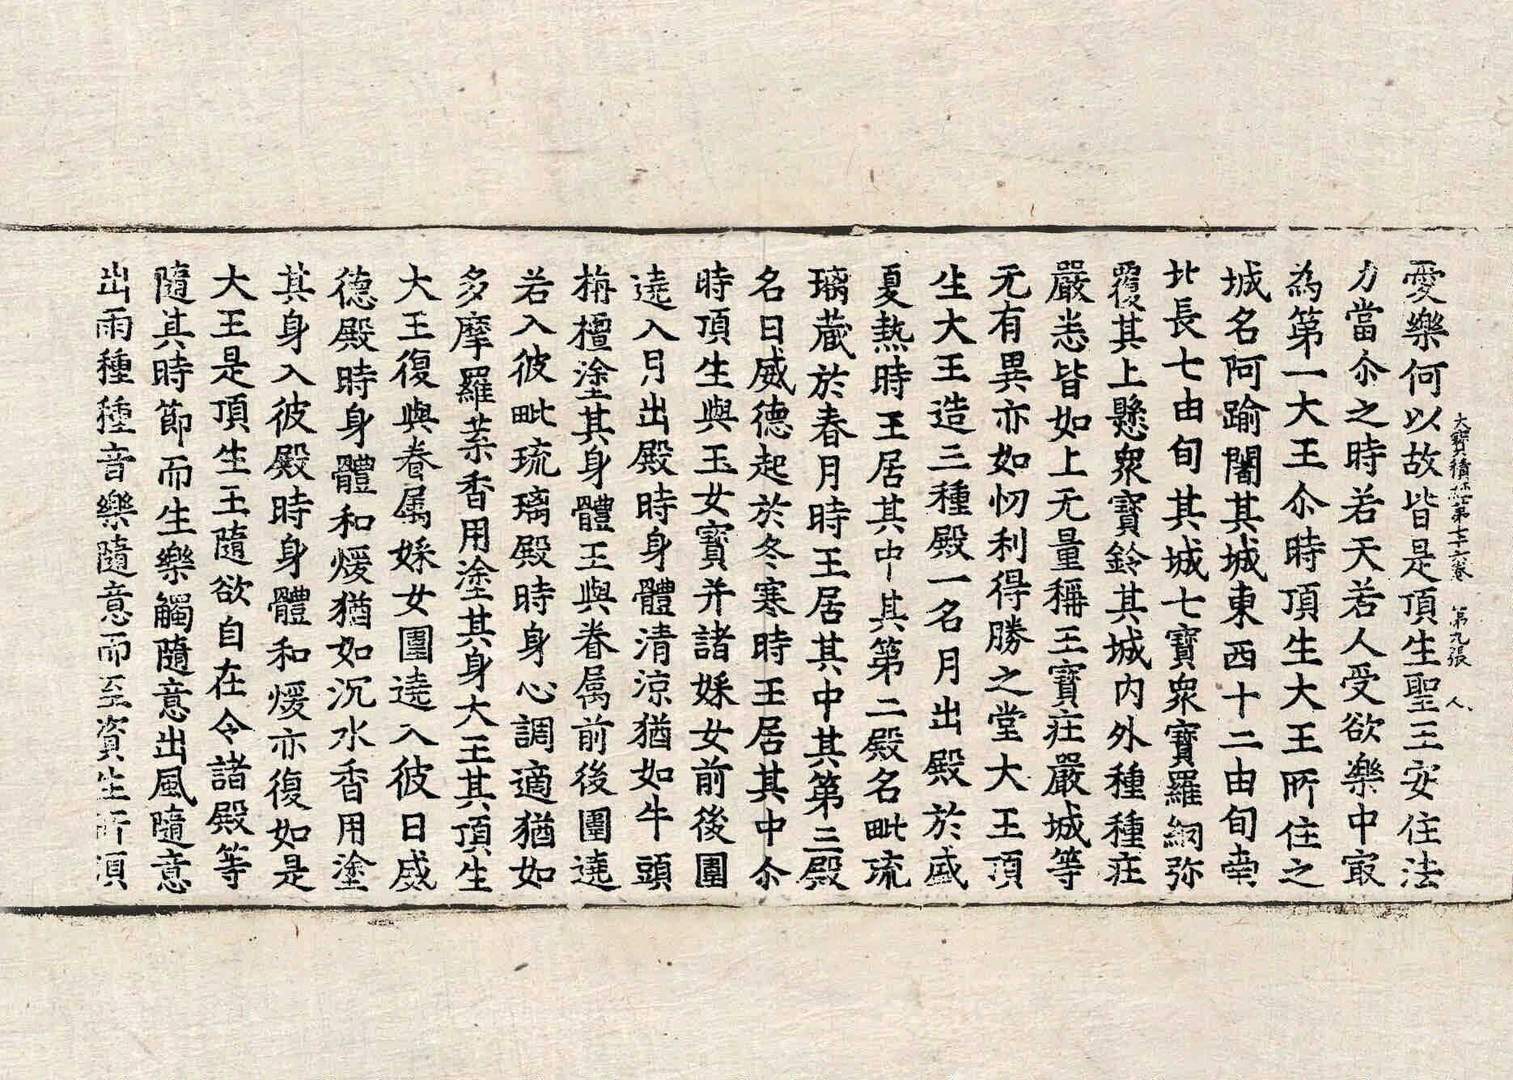 愛樂何以故皆是頂生聖王安住法
大寶積經第七十六卷　第九張　人
力當尒之時若天若人受欲樂中㝡
為第一大王尒時頂生大王所住之
城名阿踰闍其城東西十二由旬南
北長七由旬其城七寶衆寶羅網弥
覆其上懸衆寶鈴其城內外種種莊
嚴悉皆如上无量稱王寶莊嚴城等
无有異亦如忉利得勝之堂大王頂
生大王造三種殿一名月出殿於盛
夏熱時王居其中其第二殿名毗流
璃藏於春月時王居其中其第三殿
名日威德起於冬寒時王居其中尒
時頂生與玉女寶并諸婇女前後圍
遶入月出殿時身體清涼猶如牛頭
栴檀塗其身體王與眷属前後圍遶
若入彼毗琉璃殿時身心調適猶如
多摩羅葉香用塗其身大王其頂生
大王復與眷属婇女圍遶入彼日威
德殿時身體和煖猶如沉水香用塗
其身入彼殿時身體和煖亦復如是
大王是頂生王隨欲自在令諸殿等
隨其時節而生樂觸隨意出風隨意
出雨種種音樂隨意而至資生所須